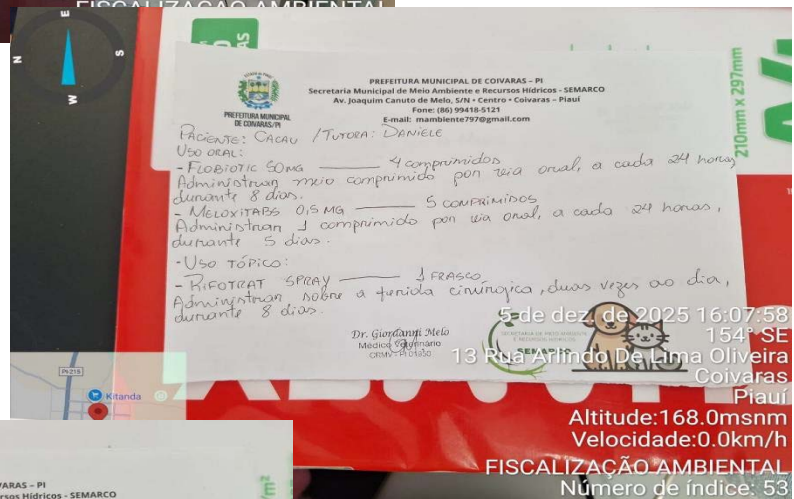 FISCALIZAÇÃO AMBIENTAL
N
E
S
W
210mm x 297mm
PREFEITURA MUNICIPAL
DE COIVARAS/PI
PREFEITURA MUNICIPAL DE COIVARAS – PI
Secretaria Municipal de Meio Ambiente e Recursos Hídricos - SEMARCO
Av. Joaquim Canuto de Melo, S/N • Centro • Coivaras – Piauí
Fone: (86) 99418-5121
E-mail: mambiente797@gmail.com
PACIENTE: CACAU / TUTORA: DANIELE
USO ORAL:
- FLOBIOTIC 50MG 4 comprimidos
Administrar meio comprimido por via oral, a cada 24 horas,
durante 8 dias.
- MELOXITABS 0,5 MG 5 COMPRIMIDOS
Administrar 1 comprimido por via oral, a cada 24 horas,
durante 5 dias.
- USO TÓPICO:
- RIFOTRAT SPRAY 1 FRASCO
Administrar sobre a ferida cirúrgica, duas vezes ao dia,
durante 8 dias.
Dr. Giordanni Melo
Médico Veterinário
CRMV-PI 01950
SECRETARIA DE MEIO AMBIENTE
E RECURSOS HÍDRICOS
SEMARCO
5 de dez. de 2025 16:07:58
154° SE
13 Rua Arlindo De Lima Oliveira
Coivaras
Piauí
Altitude:168.0msnm
Velocidade:0.0km/h
FISCALIZAÇÃO AMBIENTAL
Número de índice: 53
PI-215
Kitanda
VARAS – PI
rsos Hídricos - SEMARCO